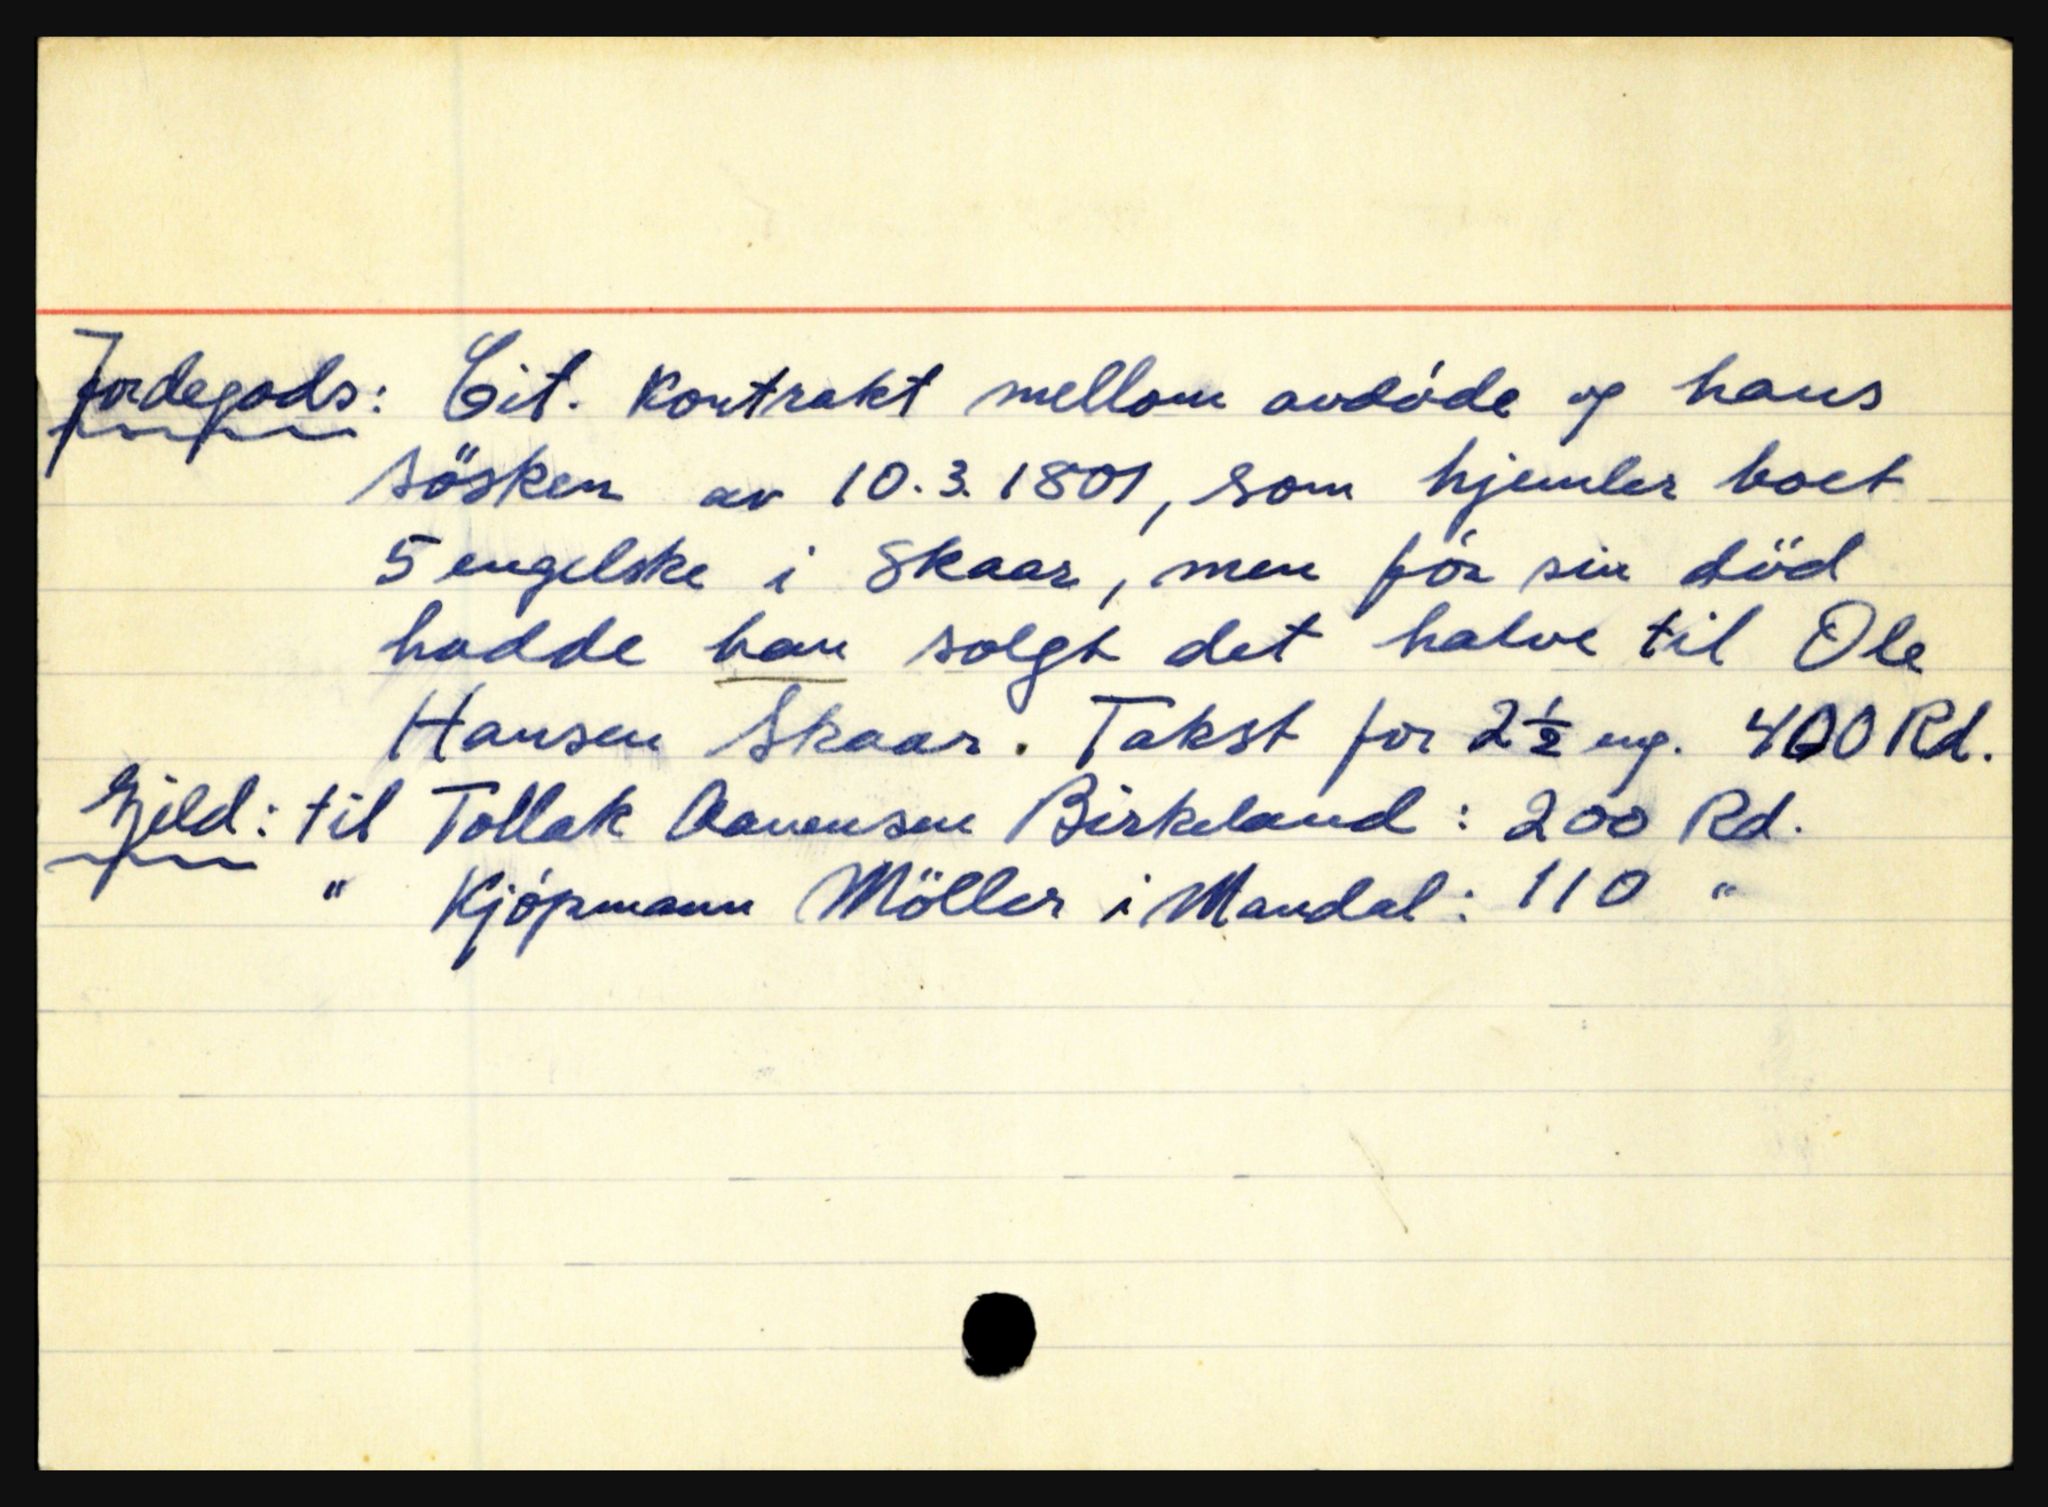 Jordegods: Cit. Kontrakt mellom avdöde og hans
sösken av 10.3.1801, som hjemler boet
5 engelske i Skaar, men för sin död
hadde han solgt det halve til Ole
Hansen Skaar. Takst for 2½ eng. 400 Rd.
Gjeld: til Tollak Aanensen Birkeland: 200 Rd.
" Kjöpmann Möller i Mandal: 110 "